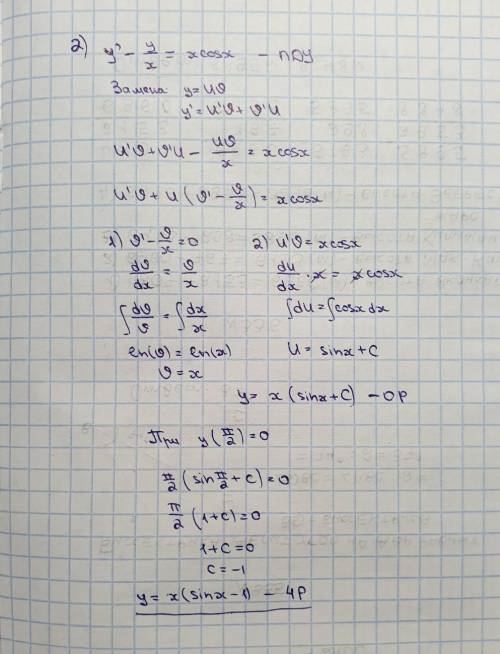 2) y' - y/x = x cosx - ЛДУ
Замена y=uϑ
y'=u'ϑ+ϑ'u
u'ϑ+ϑ'u - uϑ/x = x cosx
u'ϑ+u(ϑ' - ϑ/x) = x cosx
1) ϑ' - ϑ/x = 0
dϑ/dx = ϑ/x
∫dϑ/ϑ = ∫dx/x
ln(ϑ) = ln(x)
ϑ = x
2) u'ϑ = x cosx
du/dx · x = x cosx
∫du = ∫cosx dx
u = sinx + C
y = x (sinx + C) - ОР
При y(π/2) = 0
π/2 (sin π/2 + C) = 0
π/2 (1 + C) = 0
1 + C = 0
C = -1
y = x(sinx - 1) - ЧР